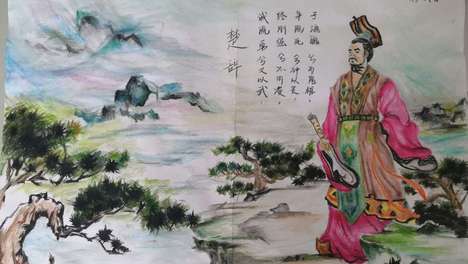 楚辞
诚既勇兮又以武，
终刚强兮不可凌，
身既死兮神以灵，
子魂魄兮为鬼雄。